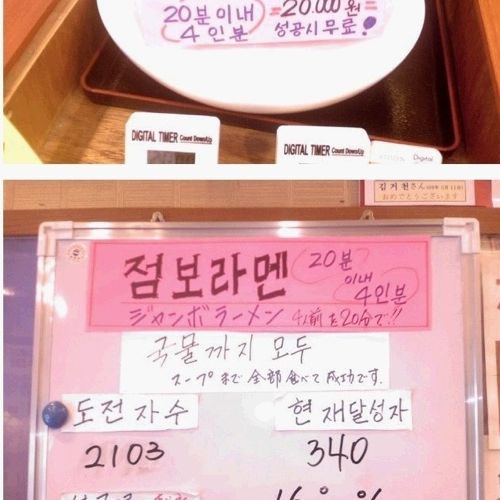 20분이내 =20.000원=
4인분 성공시 무료!
DIGITAL TIMER Count Down/Up
DIGITAL TIMER Count Down/Up
Digital
김거천さん
おめでとうございます
점보라멘 20분 이내 4인분
ジャンボラーメン 4人前を20分で!!
국물까지 모두
スープまで全部食べて成功です.
도전자수 현재달성자
2103 340